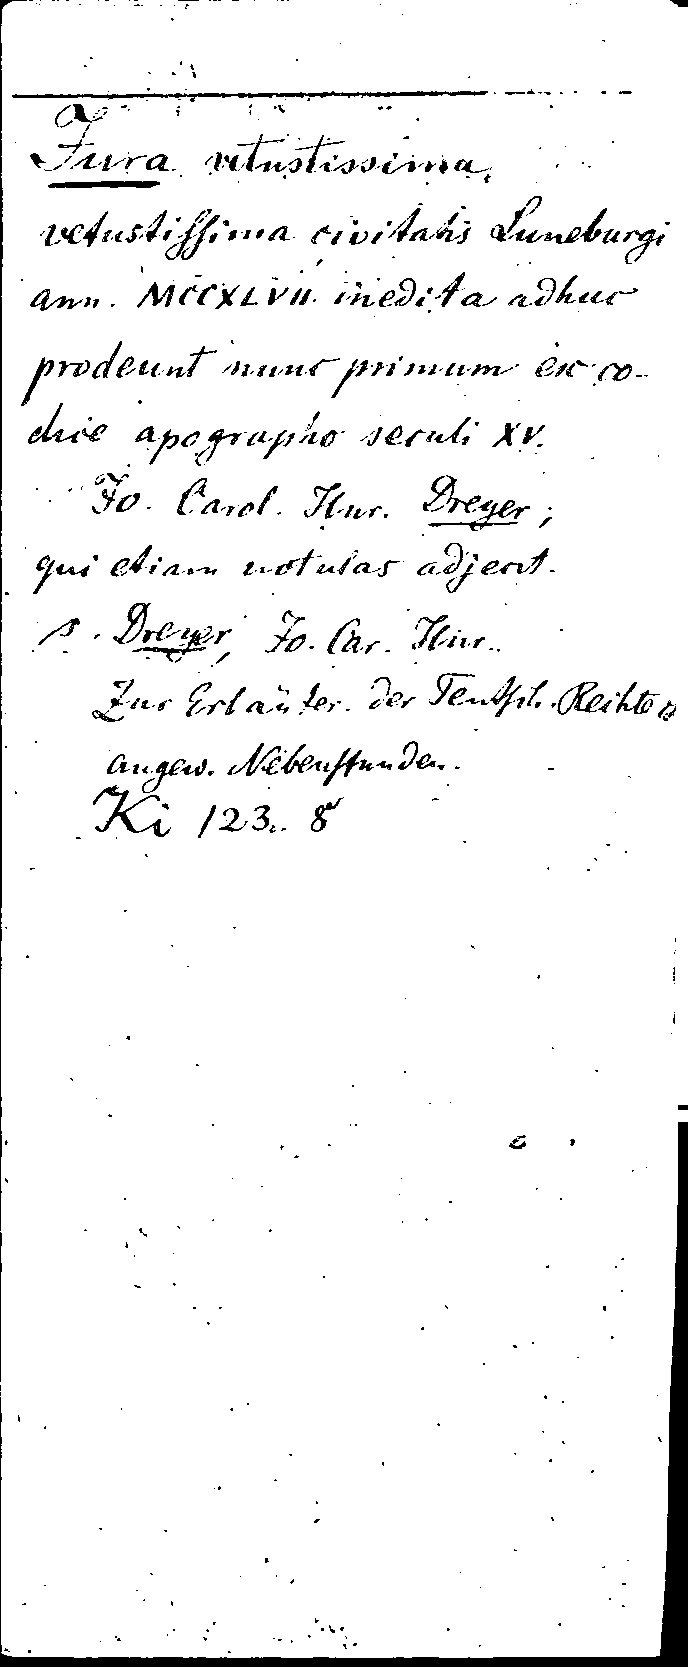 Jura vetustissima.
vetustissima civitatis Luneburgi
ann. MCCXLVII. inedita adhuc
prodeunt nunc primum ex co-
dice apographo seculi XV.
Jo. Carol. Hnr. Dreyer;
qui etiam notulas adjecit.
s. Dreyer, Jo. Car. Hnr.
Zur Erläuter. der Teutsch. Reichte
angew. Nebenstunden.
Ki 123. 8°